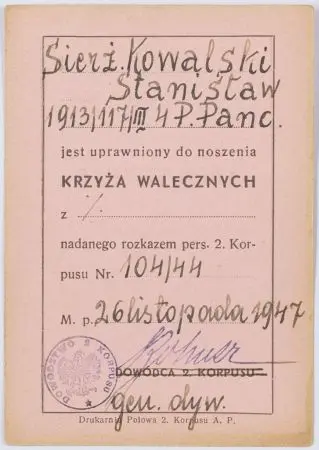 Sierż. Kowalski
Stanisław
1913/117/III 4 P. Panc.
jest uprawniony do noszenia
KRZYŻA WALECZNYCH
z %
nadanego rozkazem pers. 2. Kor-
pusu Nr. 104/44
M. p. 26 listopada 1947
DOWÓDZTWO 2 KORPUSU
DOWÓDCA 2. KORPUSU
gen. dyw.
Drukarnia Polowa 2. Korpusu A. P.